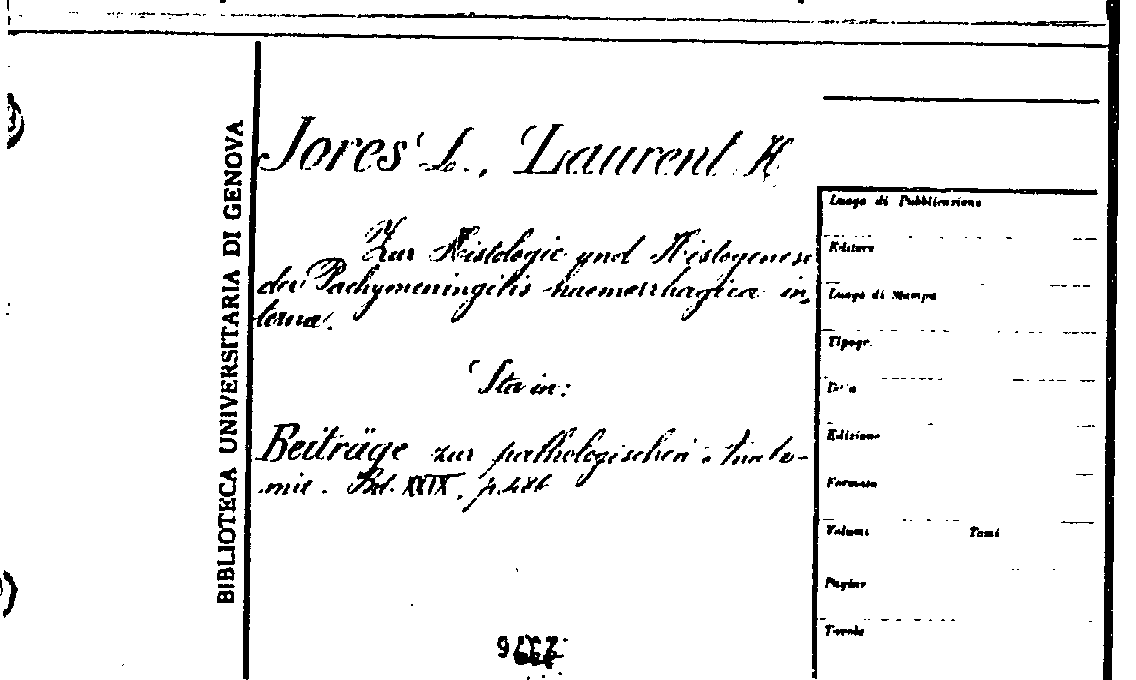 BIBLIOTECA UNIVERSITARIA DI GENOVA
Jores L., Laurent H
Zur Histologie und Histogenese
der Pachymeningitis haemorrhagica in,
terna.
Sta in:
Beiträge zur pathologischen Anato-
mie. Bd. XXIX, p. 486
Luogo di Pubblicazione
Editore
Luogo di Stampa
Tipogr.
Data
Edizione
Formato
Volumi Tomi
Pagine
Tavole